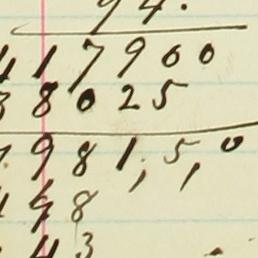 94.
417900
38025
7.981,5,0
148
43